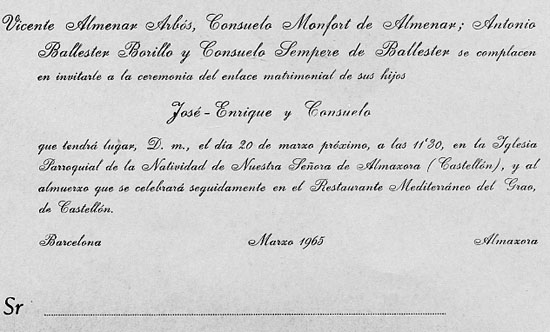 Vicente Almenar Arbós, Consuelo Monfort de Almenar; Antonio
Ballester Borillo y Consuelo Sempere de Ballester se complacen
en invitarle a la ceremonia del enlace matrimonial de sus hijos
José-Enrique y Consuelo
que tendrá lugar, D. m., el día 20 de marzo próximo, a las 11'30, en la Iglesia
Parroquial de la Natividad de Nuestra Señora de Almazora (Castellón), y al
almuerzo que se celebrará seguidamente en el Restaurante Mediterráneo del Grao,
de Castellón.
Barcelona Marzo 1965 Almazora
Sr